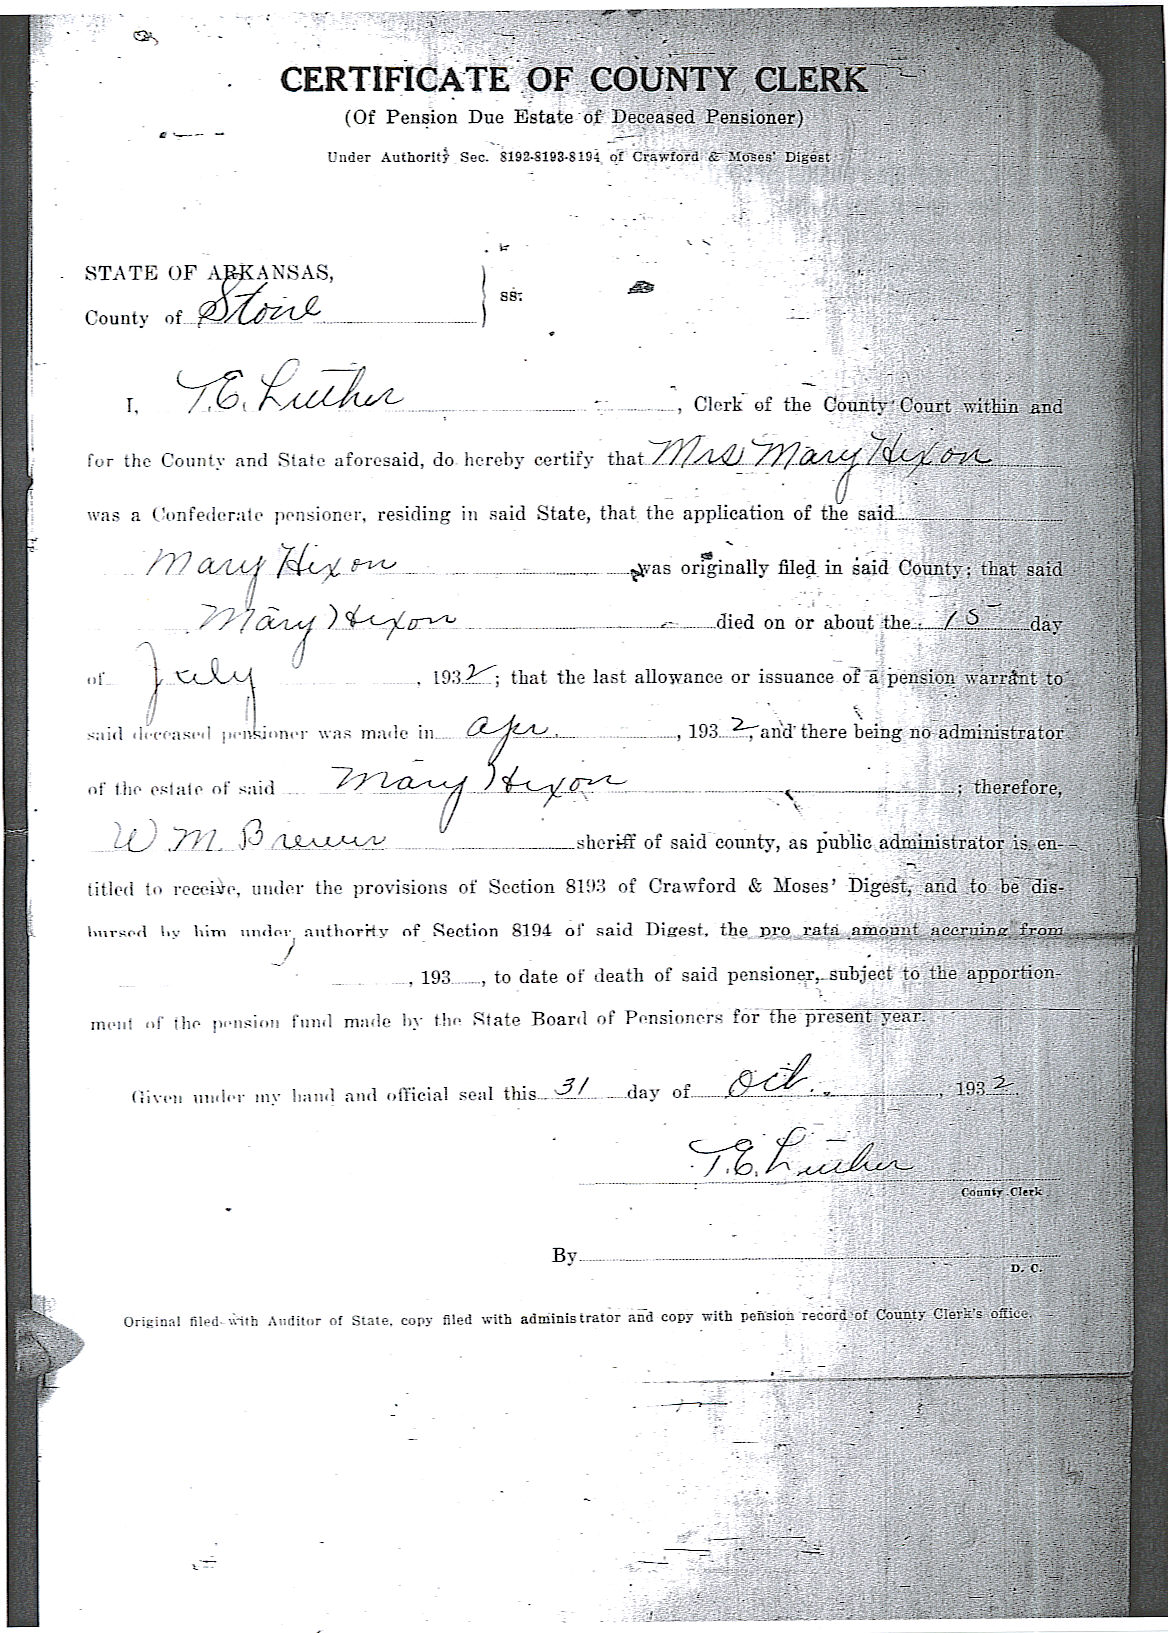 CERTIFICATE OF COUNTY CLERK
(Of Pension Due Estate of Deceased Pensioner)
Under Authority Sec. 8192-8193-8194 of Crawford & Moses' Digest
STATE OF ARKANSAS,
ss:
County of Stone
I, T.E. Luther, Clerk of the County Court within and
for the County and State aforesaid, do hereby certify that Mrs Mary Hixon
was a Confederate pensioner, residing in said State, that the application of the said
Mary Hixon was originally filed in said County; that said
Mary Hixon died on or about the 15 day
of July, 1932; that the last allowance or issuance of a pension warrant to
said deceased pensioner was made in Apr., 1932, and there being no administrator
of the estate of said Mary Hixon; therefore,
W.M. Brewer sheriff of said county, as public administrator is en-
titled to receive, under the provisions of Section 8193 of Crawford & Moses' Digest, and to be dis-
bursed by him under authority of Section 8194 of said Digest, the pro rata amount accruing from
, 193, to date of death of said pensioner, subject to the apportion-
ment of the pension fund made by the State Board of Pensioners for the present year.
Given under my hand and official seal this 31 day of Oct., 1932
T.E. Luther
County Clerk
By
D. C.
Original filed with Auditor of State, copy filed with administrator and copy with pension record of County Clerk's office.